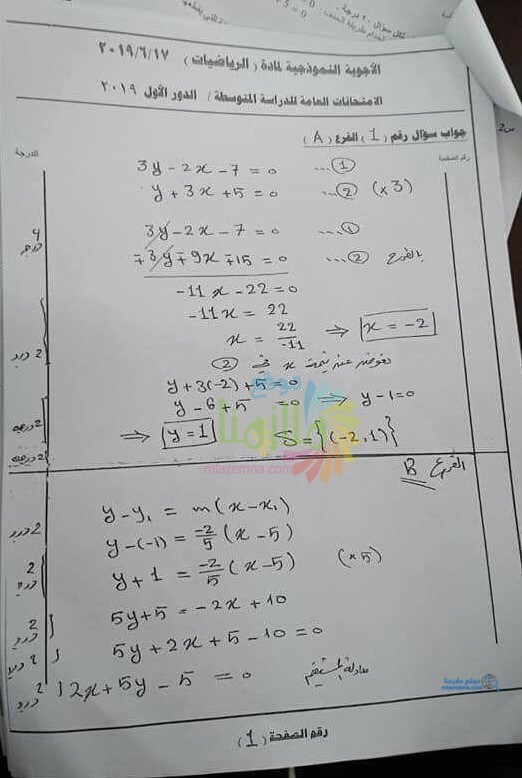 الأجوبة النموذجية لمادة ( الرياضيات ) ٢٠١٩/٦/١٧
الامتحانات العامة للدراسة المتوسطة / الدور الأول ٢٠١٩
جواب سؤال رقم ( 1 ) الفرع ( A )
رقم الصفحة
الدرجة
3y - 2x - 7 = 0 ... ①
y + 3x + 5 = 0 ... ② (×3)
3y - 2x - 7 = 0 ... ①
∓3y ∓ 9x ∓ 15 = 0 ... ② بالطرح
-11x - 22 = 0
-11x = 22
x = 22/-11 ⇒ x = -2
نعوض عن قيمة x في ②
y + 3(-2) + 5 = 0
y - 6 + 5 = 0 ⇒ y - 1 = 0
⇒ y = 1 S = {(-2, 1)}
موقع
ملازمنا
mlazemna.com
الفرع B
y - y₁ = m(x - x₁)
y - (-1) = -2/5 (x - 5)
y + 1 = -2/5 (x - 5) (×5)
5y + 5 = -2x + 10
5y + 2x + 5 - 10 = 0
2x + 5y - 5 = 0 معادلة المستقيم
موقع ملازمنا
mlazemna.com
رقم الصفحة ( 1 )